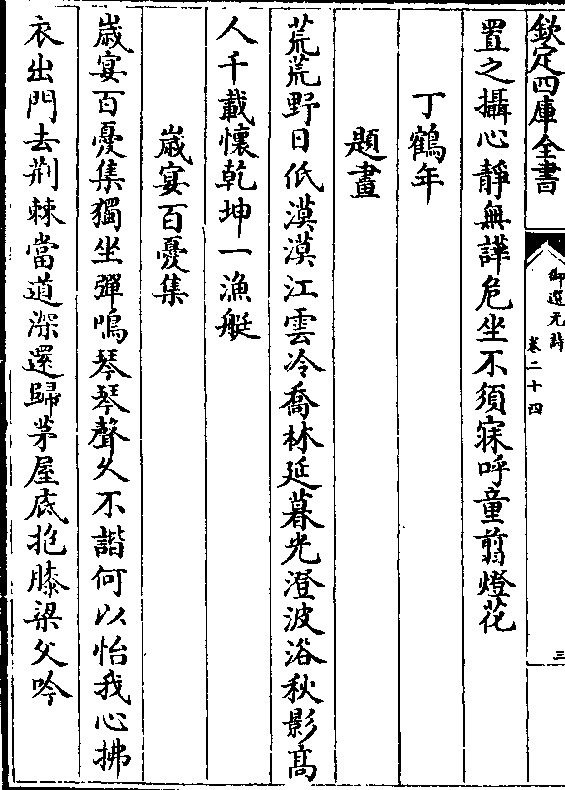 欽定四庫全書
御選元詩
卷二十四
三
置之攝心靜無譁危坐不須寐呼童翦燈花
丁鶴年
題畫
荒荒野日低漠漠江雲冷喬林延暮光澄波浴秋影高
人千載懷乾坤一漁艇
嵗宴百憂集
嵗宴百憂集獨坐彈鳴琴琴聲乆不諧何以怡我心拂
衣出門去荆棘當道深還歸茅屋底抱膝梁父吟